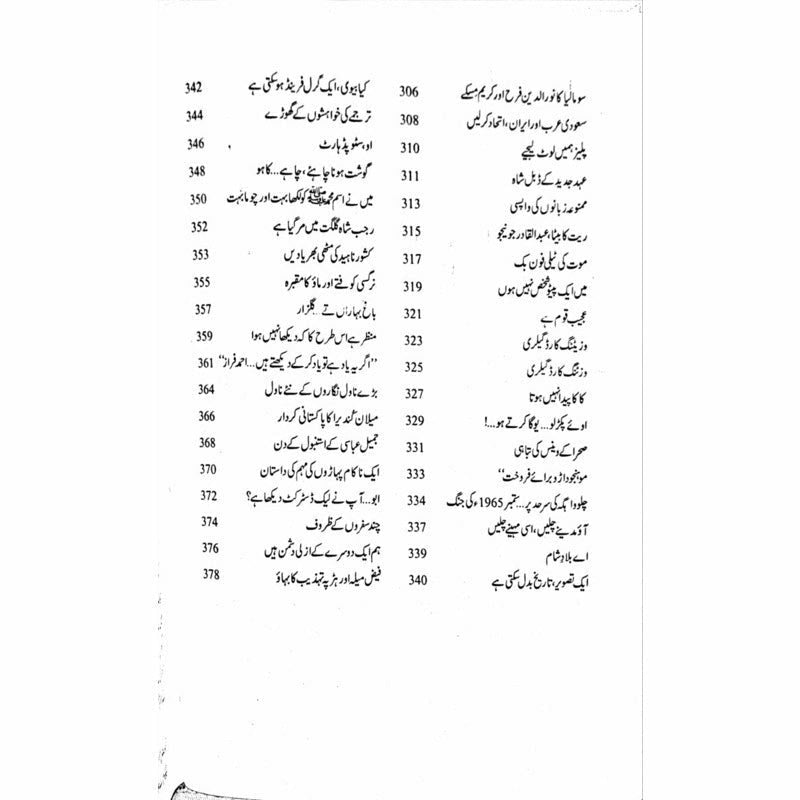 سومالیا کا نورالدین فرح اور کریم مسکے 306
سعودی عرب اور ایران، اتحاد کرلیں 308
پلیز ہمیں لوٹ لیجیے 310
عہد جدید کے ڈبل شاہ 311
ممنوعہ زبانوں کی واپسی 313
ریت کا بیٹا، عبدالقادر جونیجو 315
موت کی ٹیلی فون بک 317
میں ایک پیٹو شخص نہیں ہوں 319
عجیب قوم ہے 321
وزیٹنگ کارڈ گیلری 323
وزٹنگ کارڈ گیلری 325
کاکا پیدا نہیں ہوتا 327
اوئے پکڑلو... یوگا کرتے ہو...! 329
صحرا کے وینس کی تباہی 331
موہنجوداڑو برائے فروخت“ 333
چلو واہگہ کی سرحد پر... ستمبر 1965ء کی جنگ 334
آؤ مدینے چلیں، اسی مہینے چلیں 337
اے بلادِ شام 339
ایک تصویر، تاریخ بدل سکتی ہے 340
کیا بیوی، ایک گرل فرینڈ ہوسکتی ہے 342
ترجمے کی خواہشوں کے گھوڑے 344
اوسٹوپڈ ہارٹ 346
گوشت ہونا چاہئے، چاہے... کا ہو 348
میں نے اسم محمد ﷺ کو لکھا بہت اور چوما بہت 350
رجب شاہ گلگت میں مر گیا ہے 352
کشور ناہید کی مٹھی بھر یادیں 353
نرگسی کوفتے اور ماؤ کا مقبرہ 355
باغ بہاراں تے... گلزار 357
منظر ہے اس طرح کا کہ دیکھا نہیں ہوا 359
”اگر یہ یاد ہے تو یاد کر کے دیکھتے ہیں... احمد فراز“ 361
بڑے ناول نگاروں کے نئے ناول 364
میلان کُندیرا کا پاکستانی کردار 366
جمیل عباسی کے استنبول کے دن 368
ایک ناکام پہاڑوں کی مہم کی داستان 370
ابو... آپ نے لیک ڈسٹرکٹ دیکھا ہے؟ 372
چند سفروں کے ظروف 374
ہم ایک دوسرے کے ازلی دشمن ہیں 376
فیض میلہ اور ہڑپہ تہذیب کا بہاؤ 378